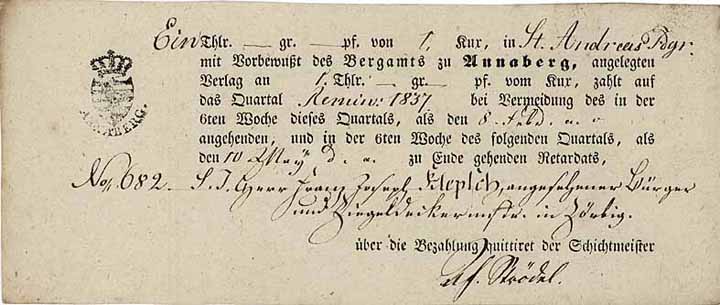 Ein Thlr. — gr. — pf. von 1. Kux, in St. Andreas Fdgr.
mit Vorbewußt des Bergamts zu Annaberg, angelegten
Verlag an 1. Thlr. — gr. — pf. vom Kux, zahlt auf
das Quartal Remin: 1837 bei Vermeidung des in der
6ten Woche dieses Quartals, als den 8. Febr. a. c.
angehenden, und in der 6ten Woche des folgenden Quartals, als
den 10 May d. a. zu Ende gehenden Retardats,
No. 682. Herr Franz Joseph angesehener Bürger
und Ziegeldeckermstr. in Zörbig.
über die Bezahlung quittiret der Schichtmeister
Strödel.
ANNABERG.